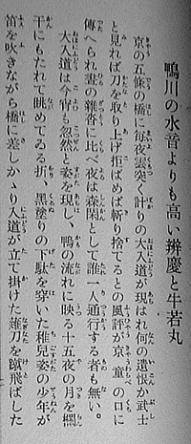 鴨川の水音よりも高い辨慶と牛若丸
京の五條の橋に毎夜雲突く計りの大入道が現はれ何の遺恨か武士
と見れば刀を取り上げ拒ばめば斬り捨てるとの風評が京童の口に
傳へられ晝の雜沓に比べ夜は森閑として誰一人通行する者も無い。
大入道は今宵も忽然と姿を現し、鴨の流れに映る十五夜の月を欄
干にもたれて眺めてゐる折、黑塗りの下駄を穿いた稚兒姿の少年が
笛を吹きながら橋に差しかゝり入道が立て掛けた薙刀を蹴飛ばした